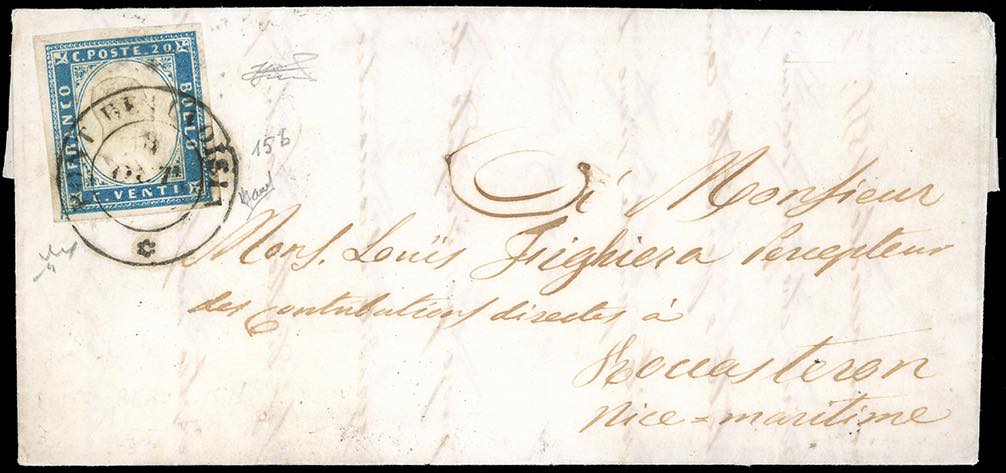 C. POSTE. 20
FRANCO
BOLLO
C. VENTI
15b
À Monsieur
Mons. Louïs Fighiera Percepteur
des Contributions directes à
Roccasteron
Nice=maritime